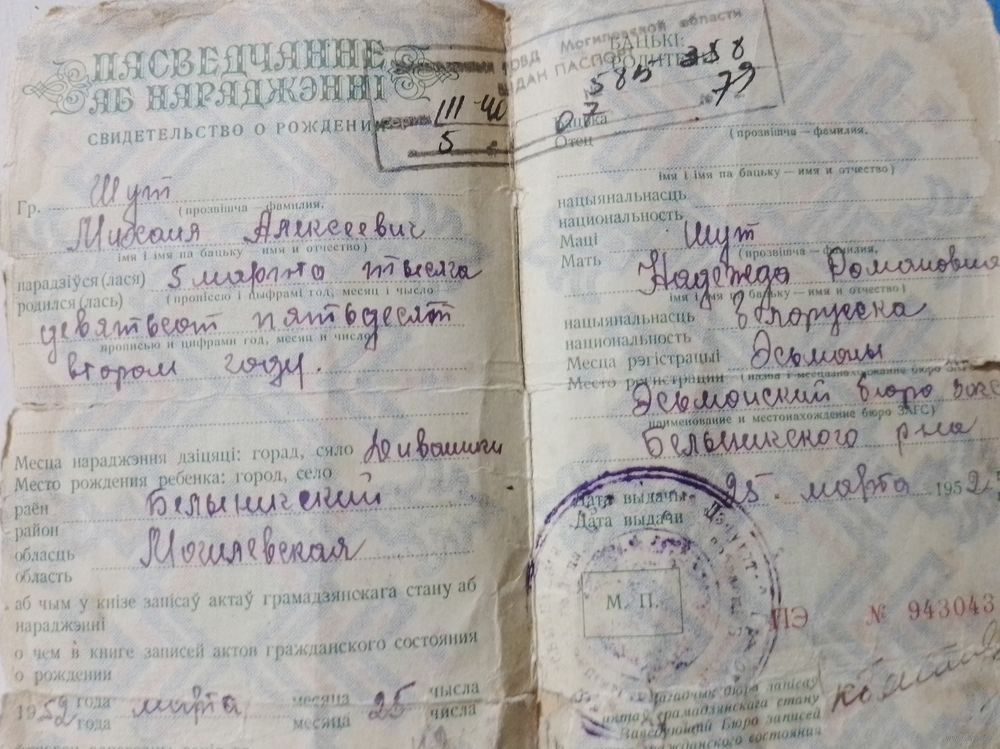 ПАСВЕДЧАННЕ
АБ НАРАДЖЭННІ
СВИДЕТЕЛЬСТВО О РОЖДЕНИИ
III-ЧО
5
Гр. Шут
(прозвішча — фамилия,
Михаил Алексеевич
імя і імя па бацьку — имя и отчество)
нарадзіўся(лася) 5 марта тысяча
родился(лась) (пропіссю і цыфрамі год, месяц і число
девятьсот пятьдесят
прописью и цифрами год, месяц и число)
втором году.
Месца нараджэння дзіцяці: горад, сяло
Место рождения ребенка: город, село
раён Белыничский
район
обласць Могилевская
область
аб чым у кнізе запісаў актаў грамадзянскага стану аб
нараджэнні
о чем в книге записей актов гражданского состояния
о рождении
1952 года марта месяца 25 чысла
года месяца числа
РОВД Могилевской области
ВЫДАН ПАСПОРТ
БАЦЬКІ:
РОДИТЕЛИ
585 358
07 79
Бацька
Отец (прозвішча — фамилия,
імя і імя па бацьку — имя и отчество)
нацыянальнасць
национальность
Маці Шут
Мать (прозвішча — фамилия,
Надежда Романовна
імя і імя па бацьку — имя и отчество)
нацыянальнасць белорусска
национальность
Месца рэгістрацыі Эсьмоны
Место регистрации (назва і месцазнаходжанне бюро ЗАГС
Эсьмонский бюро загс
наименование и местонахождение бюро ЗАГС)
Белыничского р-на
Дата выдачы 25 марта 1952
Дата выдачи
М. П.
ПЭ № 943043
Загадчык бюро запісаў
актаў грамадзянскага стану
Заведующий бюро записей
гражданского состояния